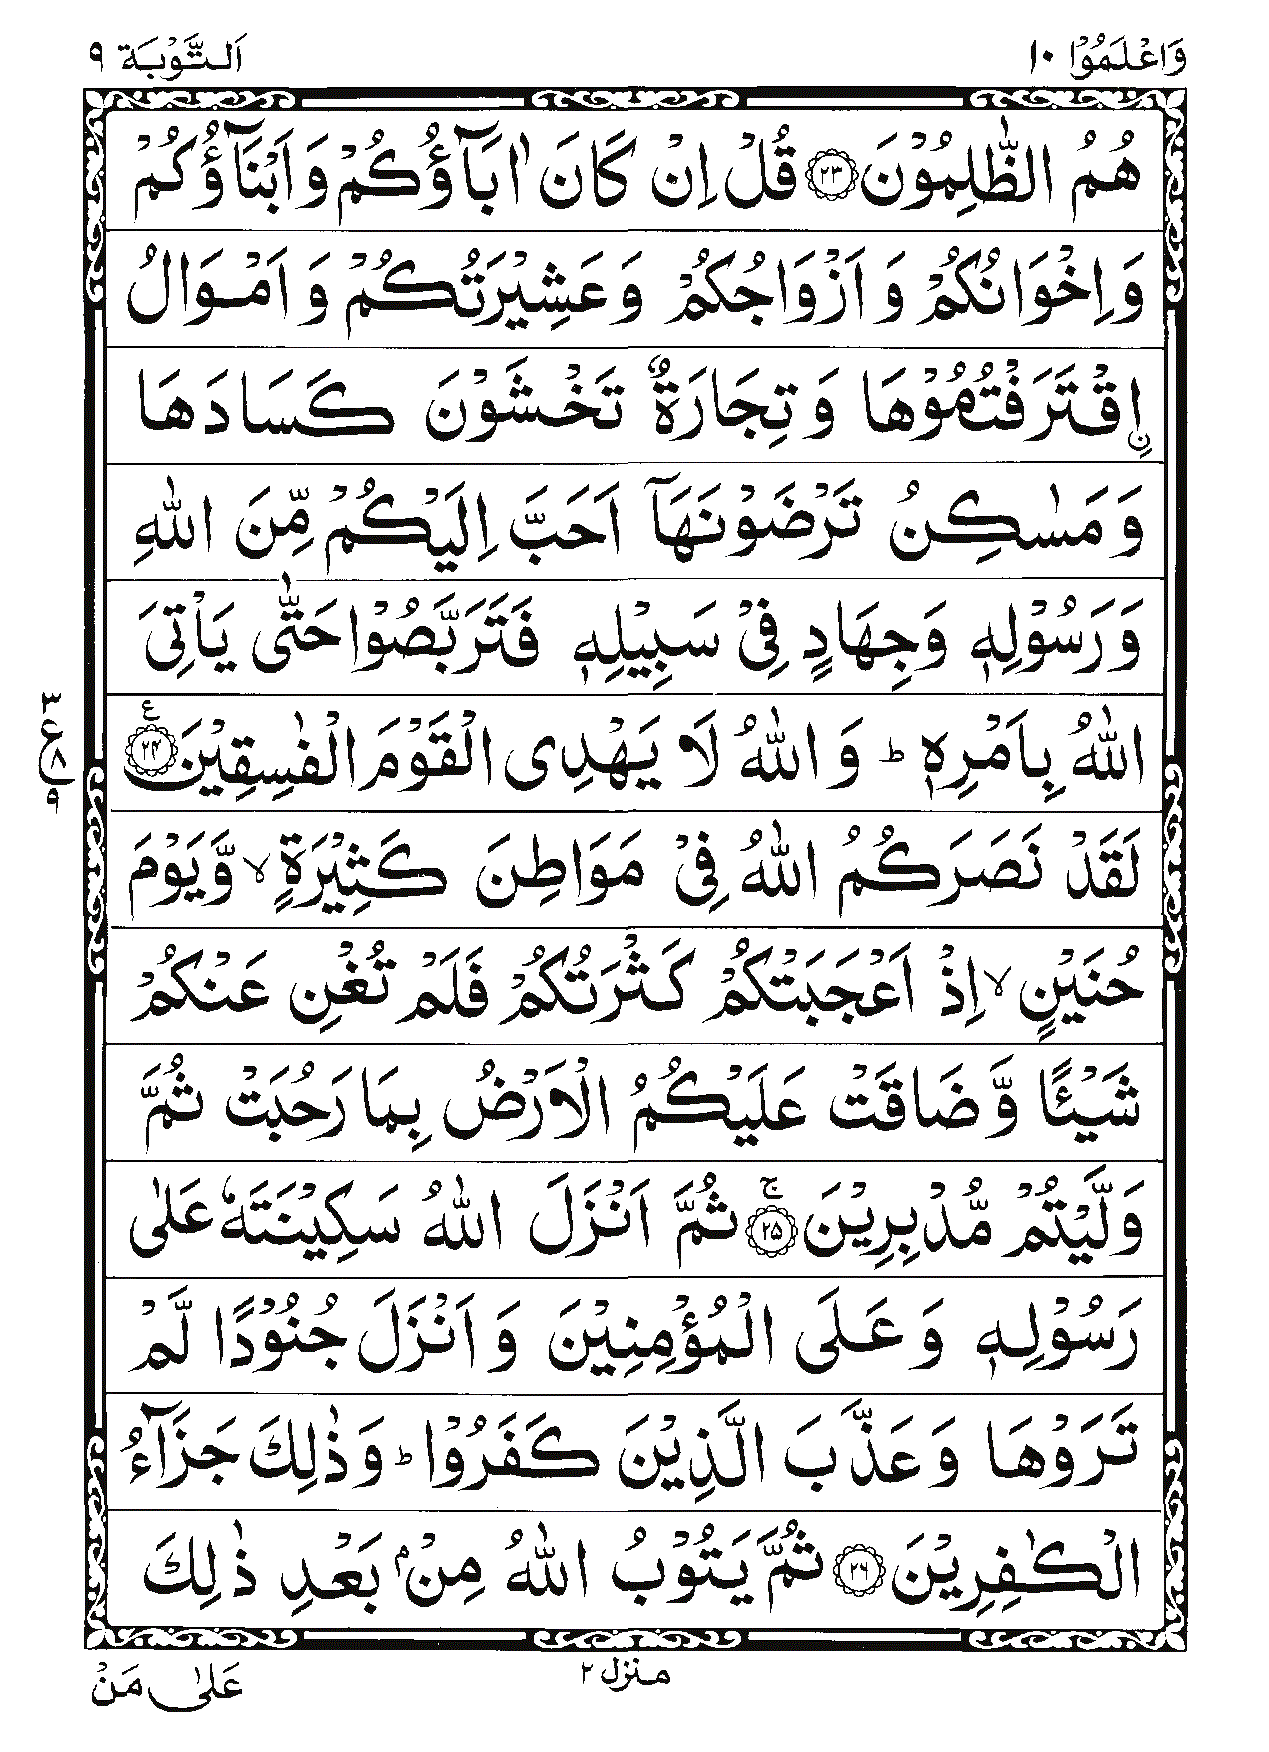 وَاعْلَمُوْا ١٠
اَلتَّوْبَة ٩
هُمُ الظّٰلِمُوْنَ ۝٢٣ قُلْ اِنْ كَانَ اٰبَآؤُكُمْ وَاَبْنَآؤُكُمْ
وَاِخْوَانُكُمْ وَ اَزْوَاجُكُمْ وَعَشِيْرَتُكُمْ وَ اَمْوَالُ
ِۨاقْتَرَفْتُمُوْهَا وَ تِجَارَةٌ تَخْشَوْنَ كَسَادَهَا
وَ مَسٰكِنُ تَرْضَوْنَهَآ اَحَبَّ اِلَيْكُمْ مِّنَ اللّٰهِ
وَ رَسُوْلِهٖ وَجِهَادٍ فِيْ سَبِيْلِهٖ فَتَرَبَّصُوْا حَتّٰى يَاْتِيَ
اللّٰهُ بِاَمْرِهٖ ؕ وَ اللّٰهُ لَا يَهْدِى الْقَوْمَ الْفٰسِقِيْنَ ۝٢٤ ع
٣
ع
٨
٩
لَقَدْ نَصَرَكُمُ اللّٰهُ فِيْ مَوَاطِنَ كَثِيْرَةٍ ۙ وَّيَوْمَ
حُنَيْنٍ ۙ اِذْ اَعْجَبَتْكُمْ كَثْرَتُكُمْ فَلَمْ تُغْنِ عَنْكُمْ
شَيْـًٔا وَّ ضَاقَتْ عَلَيْكُمُ الْاَرْضُ بِمَا رَحُبَتْ ثُمَّ
وَلَّيْتُمْ مُّدْبِرِيْنَ ۝٢٥ ۚ ثُمَّ اَنْزَلَ اللّٰهُ سَكِيْنَتَهٗ عَلٰى
رَسُوْلِهٖ وَ عَلَى الْمُؤْمِنِيْنَ وَ اَنْزَلَ جُنُوْدًا لَّمْ
تَرَوْهَا وَ عَذَّبَ الَّذِيْنَ كَفَرُوْا ؕ وَ ذٰلِكَ جَزَآءُ
الْكٰفِرِيْنَ ۝٢٦ ثُمَّ يَتُوْبُ اللّٰهُ مِنْۢ بَعْدِ ذٰلِكَ
منزل ٢
عَلٰى مَنْ